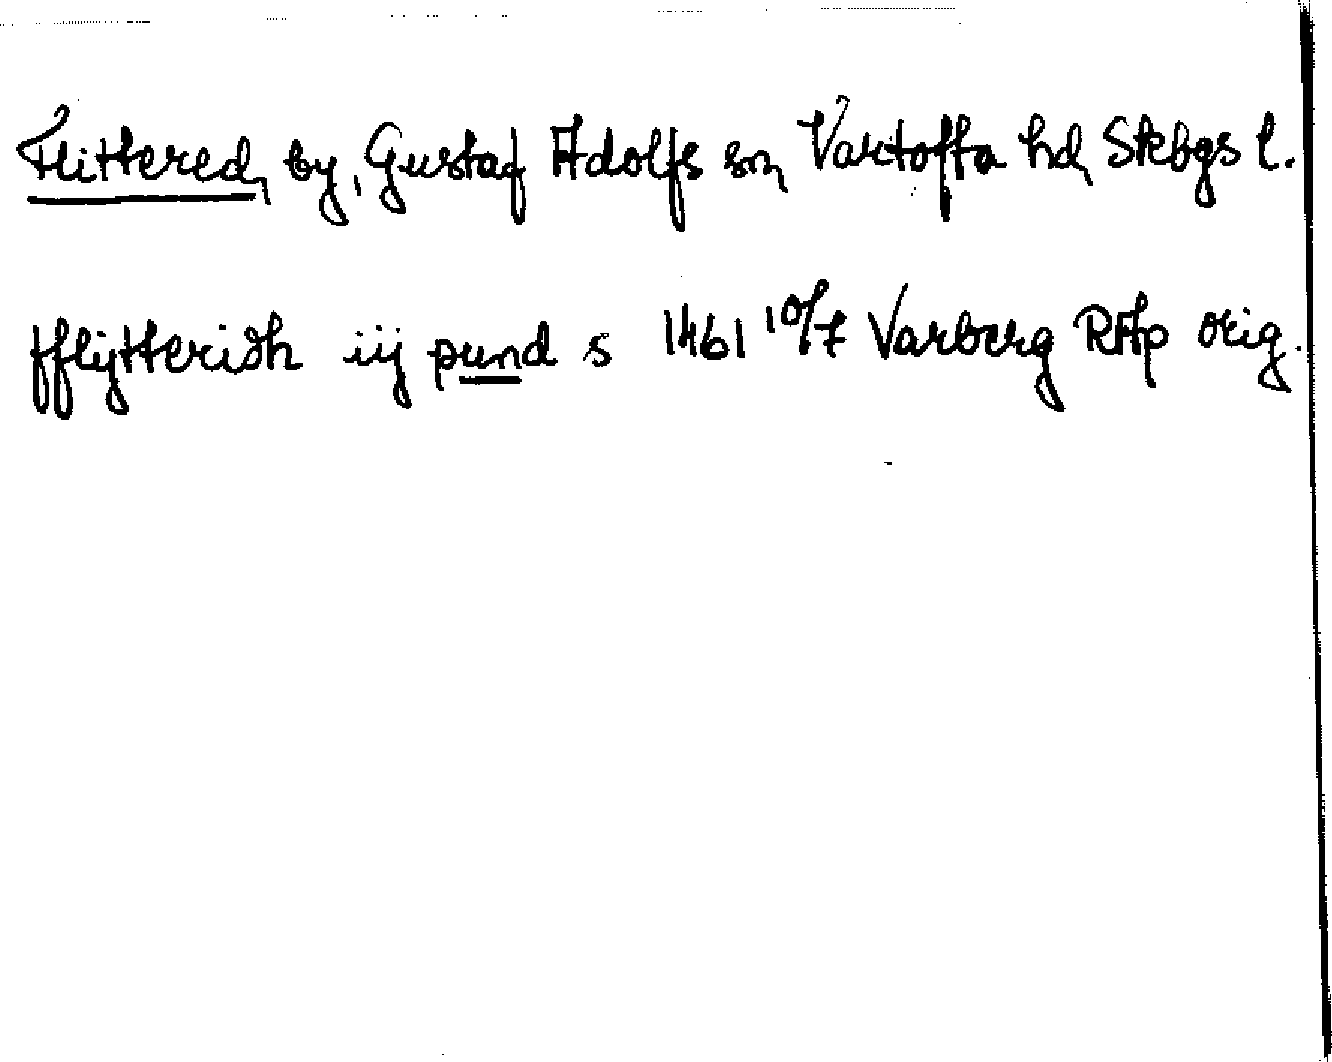 Flittered, by, Gustaf Adolfs sn, Vartofta hd, Skbgs l.
fflÿtteridh iij pund s 1461 10/7 Varberg RAp orig.